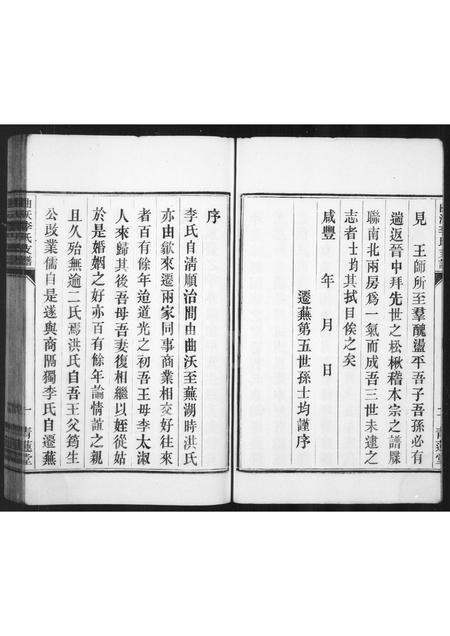 見　王師所至羣醜盪平吾子吾孫必有
遄返晉中拜先世之松楸稽本宗之譜牒
聯南北兩房爲一氣而成吾三世未逮之
志者士均其拭目俟之矣
咸豐　年　月　日
遷蕪第五世孫士均謹序
二　青蓮堂
序
李氏自清順治間由曲沃至蕪湖時洪氏
亦由歙來遷兩家同事商業相交好往來
者百有餘年迨道光之初吾王母李太淑
人來歸其後吾母吾妻復相繼以姪從姑
於是婚姻之好亦百有餘年論情誼之親
且久殆無逾二氏焉洪氏自吾王父筠生
公改業儒自是遂與商隔獨李氏自遷蕪
曲沃李氏支譜
一　青蓮堂